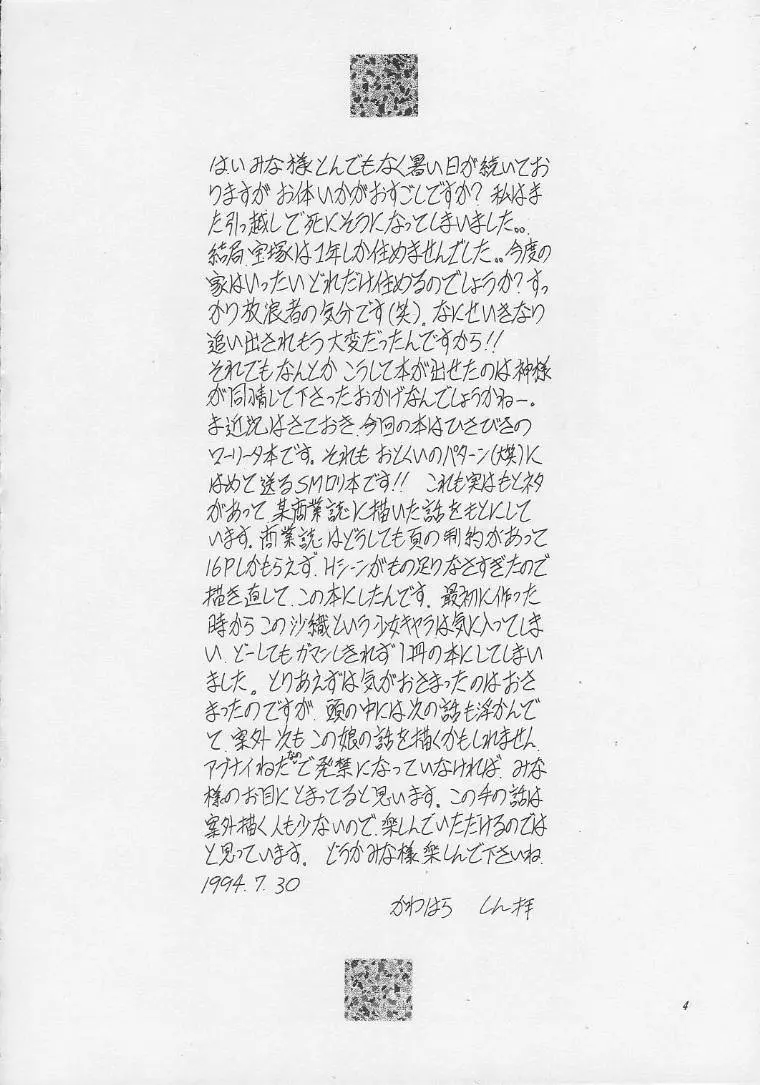 はいみな様とんでもなく暑い日が続いてお
りますが お体いかがおすごしですか？ 私はま
た引っ越しで死にそうになってしまいました。。
結局、宝塚は1年しか住めませんでした。。今度の
家はいったいどれだけ住めるのでしょうか？すっ
かり放浪者の気分です(笑)。なにせいきなり
追い出されもう大変だったんですから!!
それでもなんとか こうして本が出せたのは神様
が同情して下さったおかげなんでしょうかねー。
ま近況はさておき、今回の本はひさびさの
ロリータ本です。それも おとくいのパターン(大笑)に
はめて送るSMロリ本です!! これも実はもとネタ
があって 某商業誌に描いた話をもとにして
います。商業誌はどうしても頁の制約があって
16Pしかもらえず、Hシーンがもの足りなさすぎたので
描き直して、この本にしたんです。最初に作った
時からこの沙織という少女キャラは気に入ってしま
い、どーしてもガマンしきれず1冊の本にしてしまい
ました。とりあえずは気がおさまったのはおさ
まったのですが、頭の中には次の話も浮かんで
て、案外次もこの娘の話を描くかもしれません。
アブナイねたなので発禁になっていなければ、みな
様のお目にとまってると思います。この手の話は
案外描く人も少ないので、楽しんでいただけるのでは
と思っています。 どうかみな様楽しんで下さいね
1994.7.30
かわはら しん拝
4